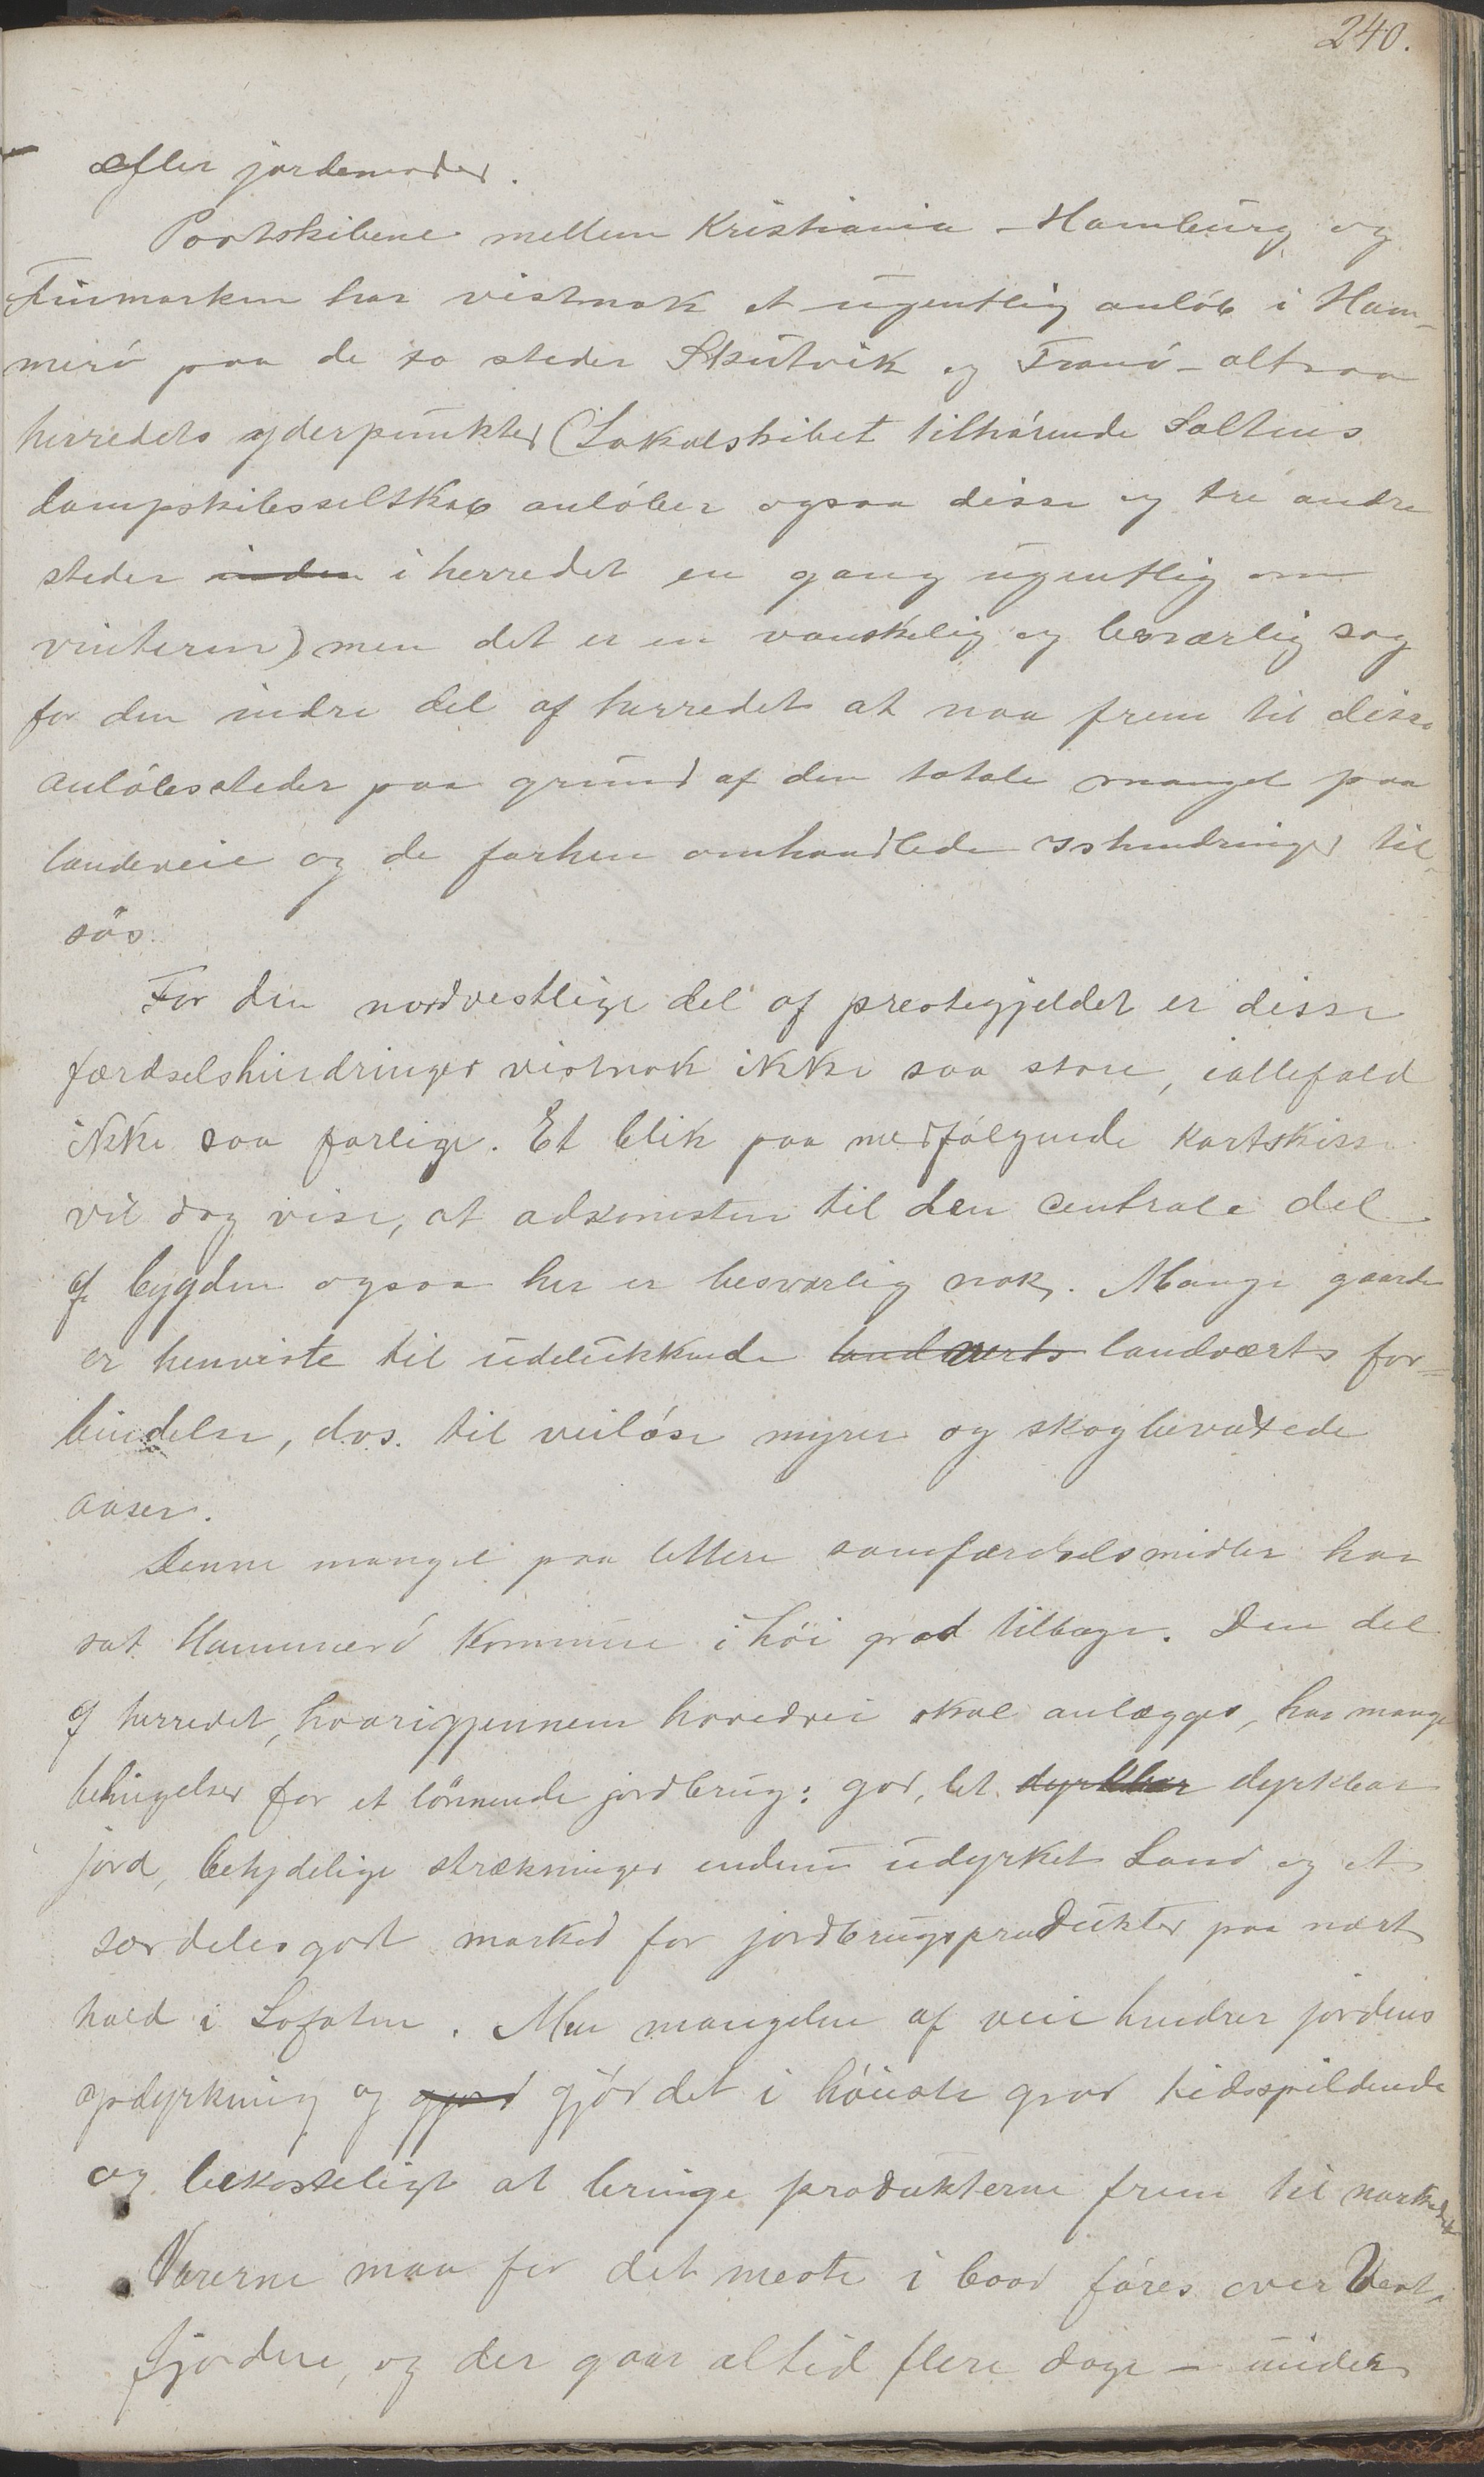 240.
efter jordemoder.
Postskibene mellem Kristiania - Hamburg og
Finmarken har vistnok et ugentlig anløb i Ham-
merø paa de to steder Skutvik og Tranø - altsaa
herredets yderpunkter (Lokalskibet tilhørende Saltens
dampskibsselskab anløber ogsaa disse og tre andre
steder inden i herredet en gang ugentlig om
vinteren) men det er en vanskelig og besværlig sag
for den indre del af herredet at naa frem til disse
anløbssteder paa grund af den totale mangel paa
landeveie og de forhen omhandlede ishindringer til-
søs.
For den nordvestlige del af prestegjeldet er disse
færdselshindringer vistnok ikke saa store, iallefald
ikke saa farlige. Et blik paa medfølgende kartskisse
vil dog vise, at adkomsten til den centrale del
af bygden ogsaa her er besværlig nok. Mange gaarde
er henviste til udelukkende landverts landværts for-
bindelse, dvs. til veiløse myrer og skogbevoxede
aaser.
Denne mangel paa lettere samfærdselsmidler har
sat Hammerø Kommune i høi grad tilbage. Den del
af herredet, hvorigjennem hovedvei skal anlægges, har mange
betingelser for et lønnende jordbrug: god, let dyrkbar dyrkbar
jord, betydelige strækninger endnu udyrket Land og et
særdeles godt marked for jordbrugsprodukter paa nært
hold i Lofoten. Men mangelen af veie hindrer jordens
opdyrkning og gjør gjør det i høieste grad tidsspildende
og bekosteligt at bringe produkterne frem til markedet
Varerne maa for det meste i baad føres over Vest-
fjorden, og der gaar altid flere dage - under